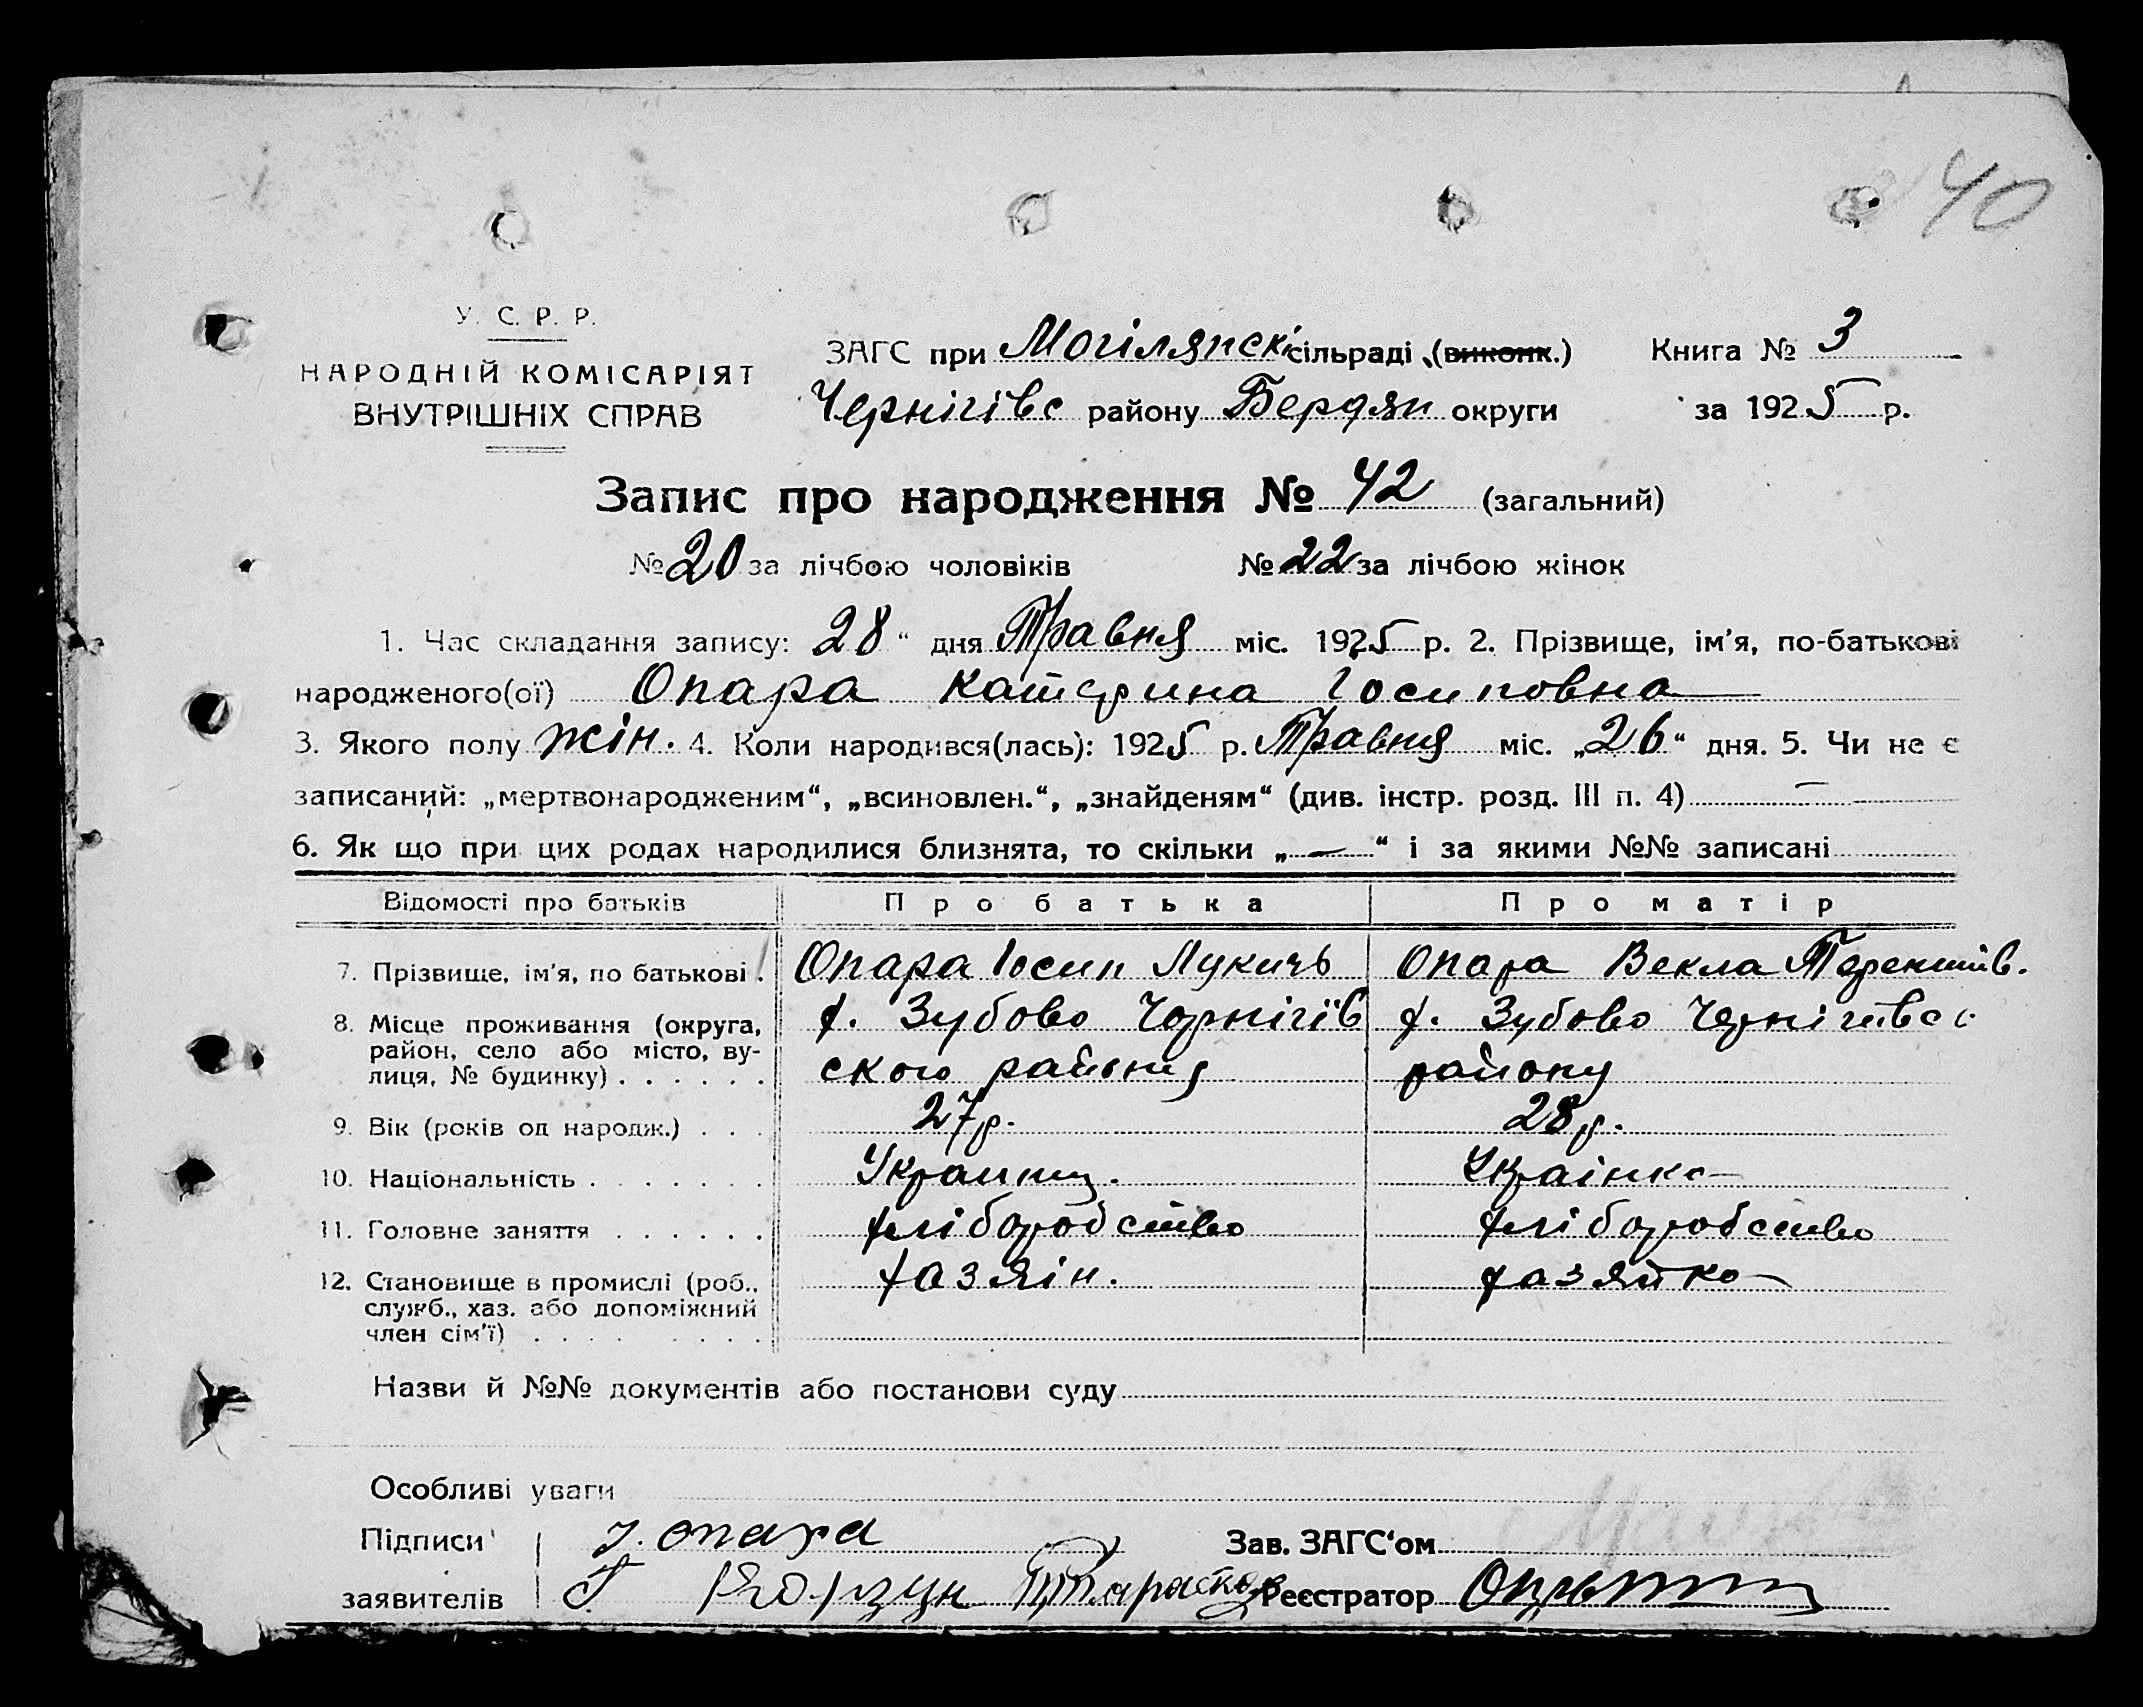 40
У. С. Р. Р.
НАРОДНІЙ КОМІСАРІЯТ
ВНУТРІШНІХ СПРАВ
ЗАГС при Могілянскі сільраді (виконк.) Книга № 3
Чернігівс району Бердян округи за 1925 р.
Запис про народження № 42 (загальний)
№ 20 за лічбою чоловіків № 22 за лічбою жінок
1. Час складання запису: 28 “ дня Травня міс. 1925 р. 2. Прізвище, ім’я, по-батькові
народженого(ої) Опара Катерина Іосиповна
3. Якого полу жін. 4. Коли народився(лась): 1925 р. Травня міс. „26“ дня. 5. Чи не є
записаний: „мертвонародженим“, „всиновлен.“, „знайденям“ (див. інстр. розд. III п. 4) —
6. Як що при цих родах народилися близнята, то скільки „—“ і за якими №№ записані
Відомості про батьків Про батька Про матір
7. Прізвище, ім’я, по батькові . Опара Іосип Лукичь Опара Векла
8. Місце проживання (округа, х. Зубово Чернігів х. Зубово Чернігівсь
район, село або місто, ву-
лиця, № будинку) . . . . . . ского району району
9. Вік (років од народж.) . . . 27 р. 28 р.
10. Національність . . . . . . . Украинц. Українка
11. Головне заняття . . . . . . хліборобство хліборобство
12. Становище в промислі (роб., хазяін. хазяйка
служб., хаз. або допоміжний
член сім’ї) . . . . . . . .
Назви й №№ документів або постанови суду
Особливі уваги
Підписи опара Зав. ЗАГС‘ом
заявителів Реєстратор